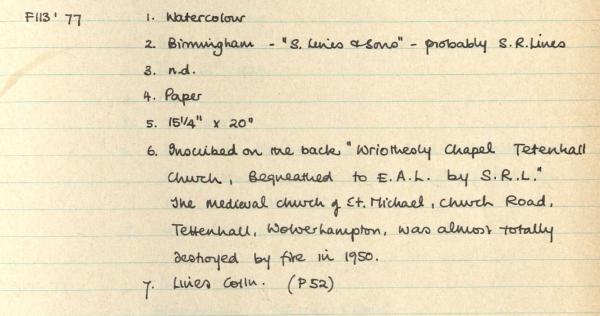 F113'77
1. Watercolour
2. Birmingham - "S. Lines & Sons" - probably S.R. Lines
3. n.d.
4. Paper
5. 15¼" x 20"
6. Inscribed on the back "Wriothesly Chapel Tetenhall
Church, Beqneathed to E.A.L. by S.R.L."
The medieval church of St. Michael, Church Road,
Tettenhall, Wolverhampton, was almost totally
destroyed by fire in 1950.
7. Lines Colln. (P52)